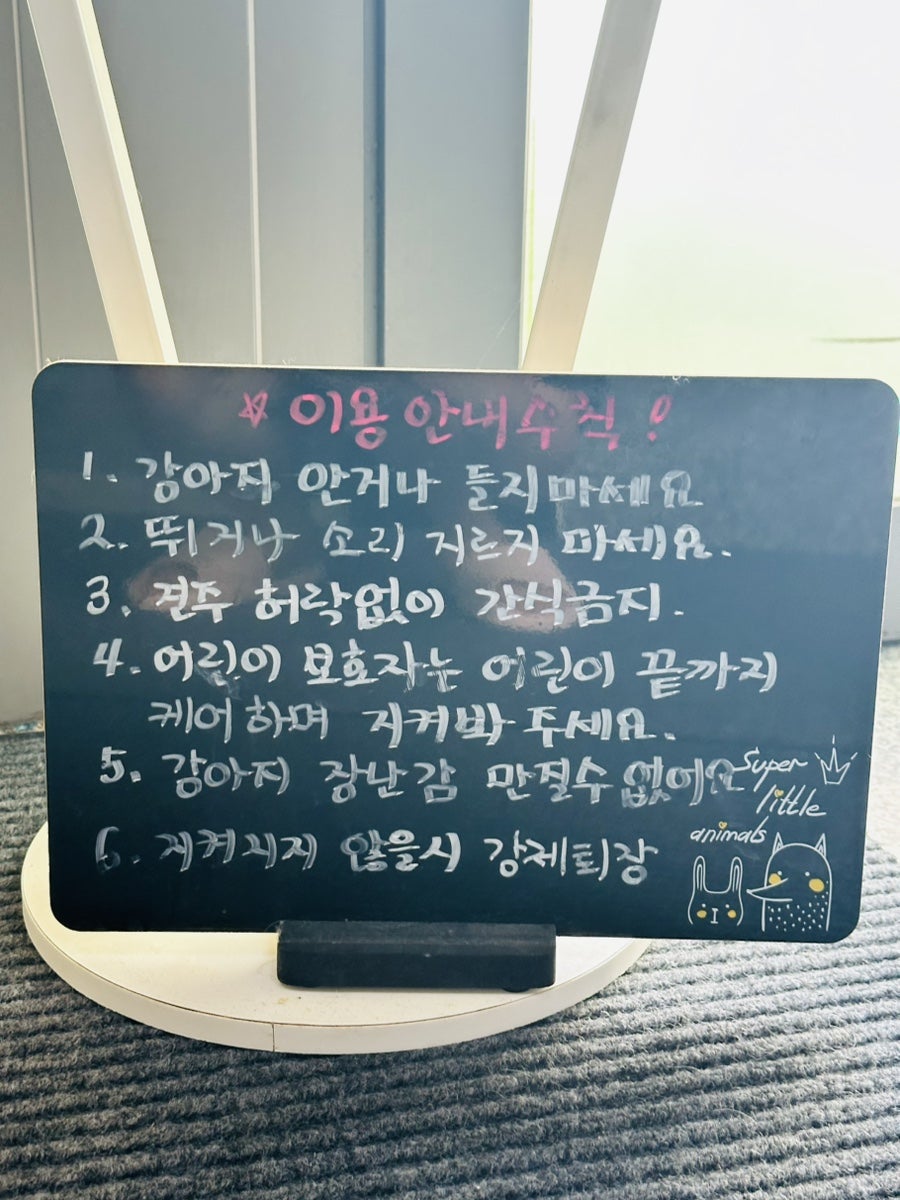 ☆ 이용안내수칙!
1. 강아지 안거나 들지마세요
2. 뛰거나 소리 지르지 마세요.
3. 견주 허락없이 간식금지.
4. 어린이 보호자는 어린이 끝까지
케어하며 지켜봐 주세요.
5. 강아지 장난감 만질수없어요
6. 지켜지지 않을시 강제퇴장
Super
little
animals